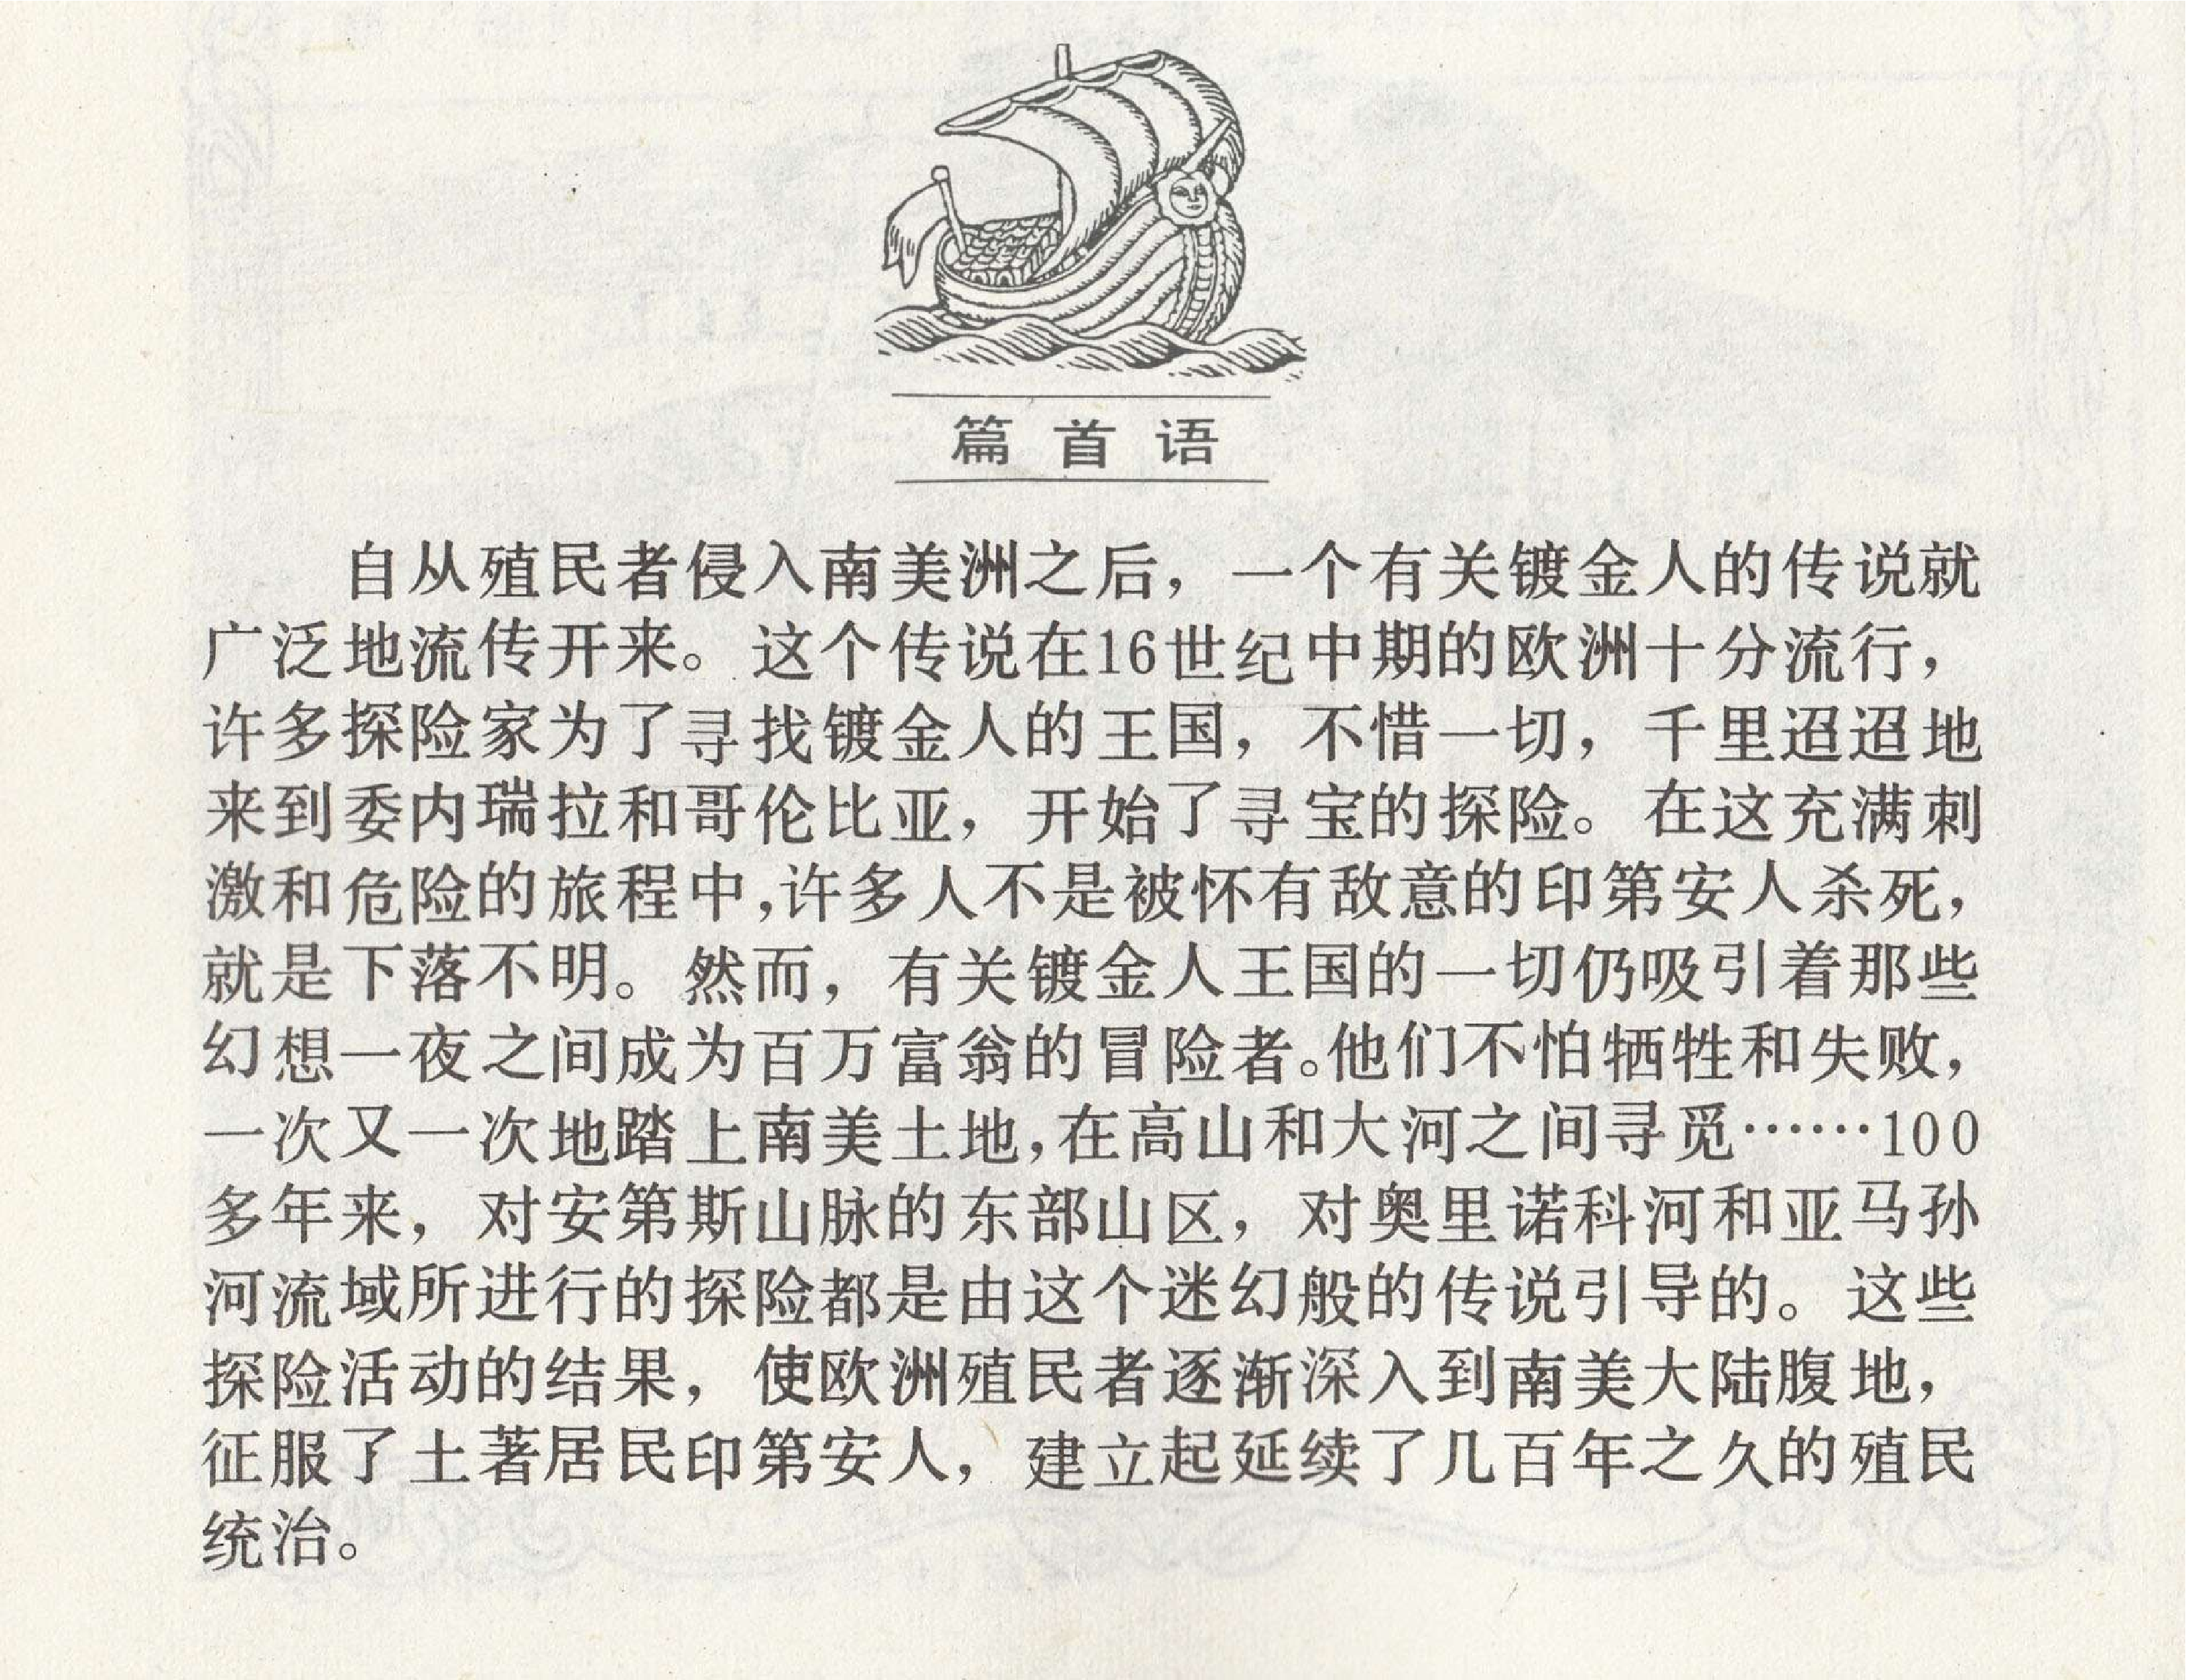 篇首语
自从殖民者侵入南美洲之后，一个有关镀金人的传说就
广泛地流传开来。这个传说在16世纪中期的欧洲十分流行，
许多探险家为了寻找镀金人的王国，不惜一切，千里迢迢地
来到委内瑞拉和哥伦比亚，开始了寻宝的探险。在这充满刺
激和危险的旅程中，许多人不是被怀有敌意的印第安人杀死，
就是下落不明。然而，有关镀金人王国的一切仍吸引着那些
幻想一夜之间成为百万富翁的冒险者。他们不怕牺牲和失败，
一次又一次地踏上南美土地，在高山和大河之间寻觅……100
多年来，对安第斯山脉的东部山区，对奥里诺科河和亚马孙
河流域所进行的探险都是由这个迷幻般的传说引导的。这些
探险活动的结果，使欧洲殖民者逐渐深入到南美大陆腹地，
征服了土著居民印第安人，建立起延续了几百年之久的殖民
统治。